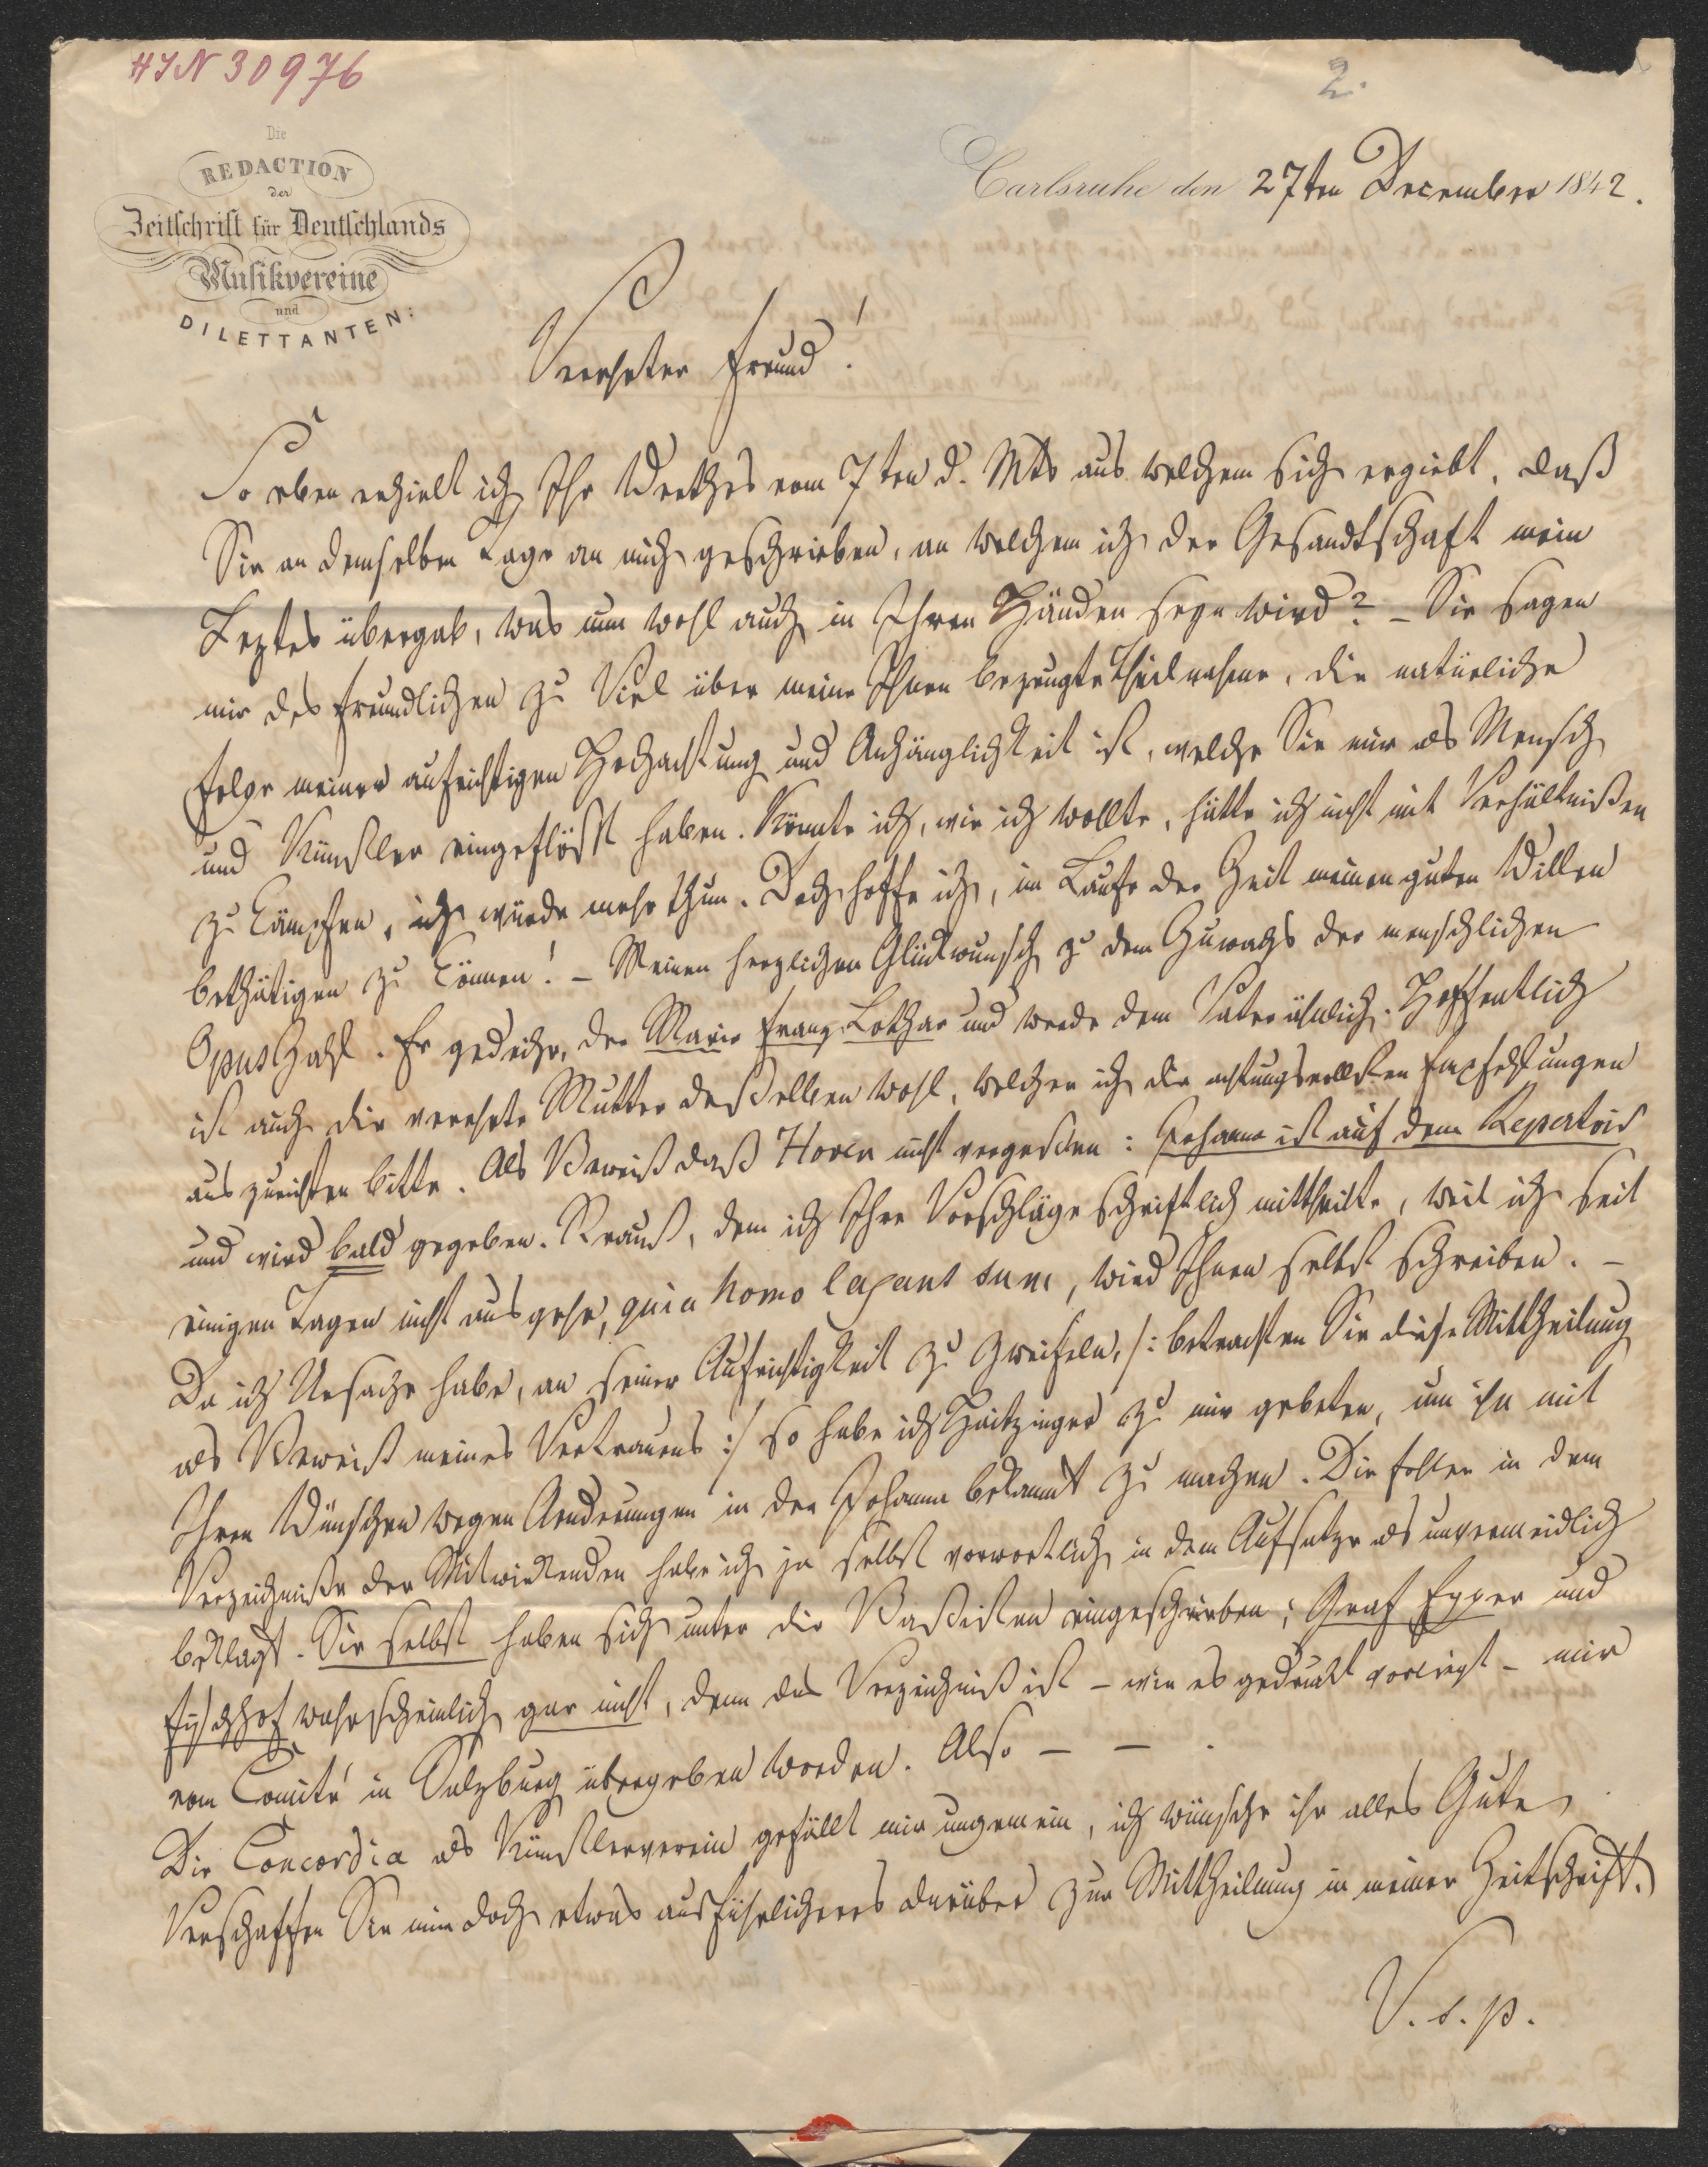 HIN 30976
2.
Die
REDACTION
der
Zeitschrift für Deutschlands
Musikvereine
und
DILETTANTEN.
Carlsruhe den 27ten December 1842.
Verehrter Freund!
So eben erhielt ich Ihr Werthes vom 7ten d. Mts aus welchem sich ergiebt, daß
Sie an demselben Tage an mich geschrieben, an welchem ich der Gesandtschaft mein
Leztes übergab, was nun wohl auch in Ihren Händen seyn wird? – Sie sagen
mir des Freundlichen zu Viel über meine Ihnen bezeugte Theilnahme, die natürliche
Folge meiner aufrichtigen Hochachtung und Anhänglichkeit ist, welche Sie mir als Mensch
und Künstler eingeflößt haben. Könnte ich, wie ich wollte, hätte ich nicht mit Verhältnißen
zu kämpfen, ich würde mehr thun. Doch hoffe ich, im Laufe der Zeit meinen guten Willen
bethätigen zu können! – Meinen herzlichen Glückwunsch zu dem Zuwachs der menschlichen
Opuszahl. Er gedeihe, der Marie Franz Lothar und werde dem Vater ähnlich. Hoffentlich
ist auch die verehrte Mutter desselben wohl, welcher ich die achtungsvollsten Empfehlungen
auszurichten bitte. Als Beweiß daß Hoven nicht vergessen: Johanna ist auf dem Repertoir
und wird bald gegeben. Krauß, dem ich Ihre Vorschläge schriftlich mittheilte, weil ich seit
einigen Tagen nicht ausgehe, quia homo sum, wird Ihnen selbst schreiben. –
Da ich Ursache habe, an seiner Aufrichtigkeit zu zweifeln, /: betrachten Sie diese Mittheilung
als Beweiß meines Vertrauens :/ so habe ich Haitzinger zu mir gebeten, um ihn mit
Ihren Wünschen wegen Aenderungen in der Johanna bekannt zu machen. Die Fehler in dem
Verzeichniße der Mitwirkenden habe ich ja selbst vorwortlich in dem Aufsatze als unvermeidlich
beklagt. Sie selbst haben sich unter die Baßisten eingeschrieben; Graf und
Fischhof wahrscheinlich gar nicht, denn das Verzeichniß ist – wie es gedruckt vorliegt – mir
vom Comité in Salzburg übergeben worden. Also – – .
Die Concordia als Künstlerverein gefällt mir ungemein, ich wünsche ihr alles Gute
Verschaffen Sie mir doch etwas ausführlicheres darüber zur Mittheilung in meiner Zeitschrift.
V. s. p.